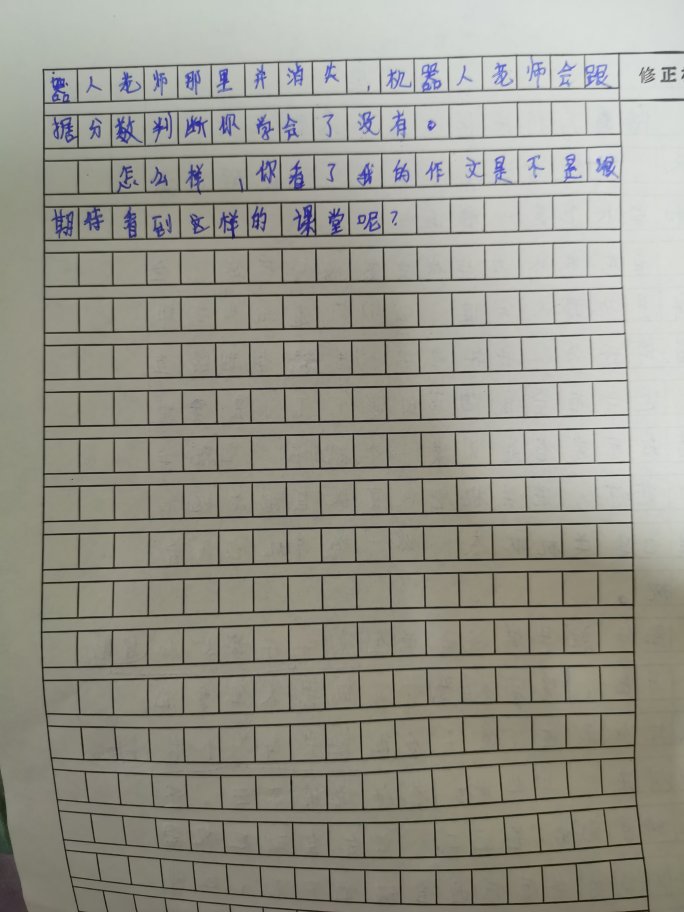 器人老师那里并消失，机器人老师会跟
修正
据分数判断你学会了没有。
怎么样，你看了我的作文是不是很
期待看到这样的课堂呢？